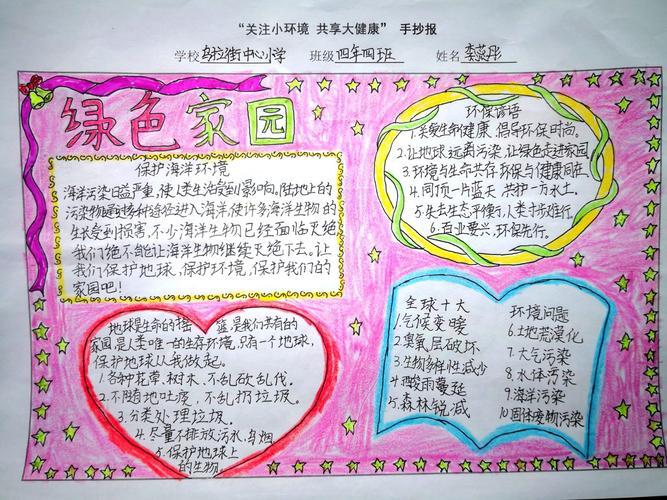 “关注小环境 共享大健康” 手抄报
学校 乌拉街中心小学 班级 四年四班 姓名 李蕊彤
绿色家园
保护海洋环境
海洋污染日益严重,使人类生活受到影响。陆地上的
污染物通过多种途径进入海洋,使许多海洋生物的
生长受到损害,不少海洋生物已经面临灭绝
我们绝不能让海洋生物继续灭绝下去。让
我们保护地球,保护环境,保护我们的
家园吧!
环保谚语
1.关爱生命健康 倡导环保时尚。
2.让地球远离污染,让绿色走进家园
3.环境与生命共存,环保与健康同在
4.同顶一片蓝天 共护一方水土。
5.失去生态平衡,人类寸步难行。
6.百业要兴,环保先行。
地球是生命的摇篮,是我们共有的
家园是人类唯一的生存环境,只有一个地球,
保护地球从我做起。
1.各种花草、树木、不乱砍乱伐。
2.不随地吐痰,不乱扔垃圾。
3.分类处理垃圾。
4.尽量不排放污水、乌烟。
5.保护地球上
的生物。
全球十大
1.气候变暖
2.臭氧层破坏
3.生物多样性减少
4.酸雨蔓延
5.森林锐减
环境问题
6.土地荒漠化
7.大气污染
8.水体污染
9.海洋污染
10.固体废物污染